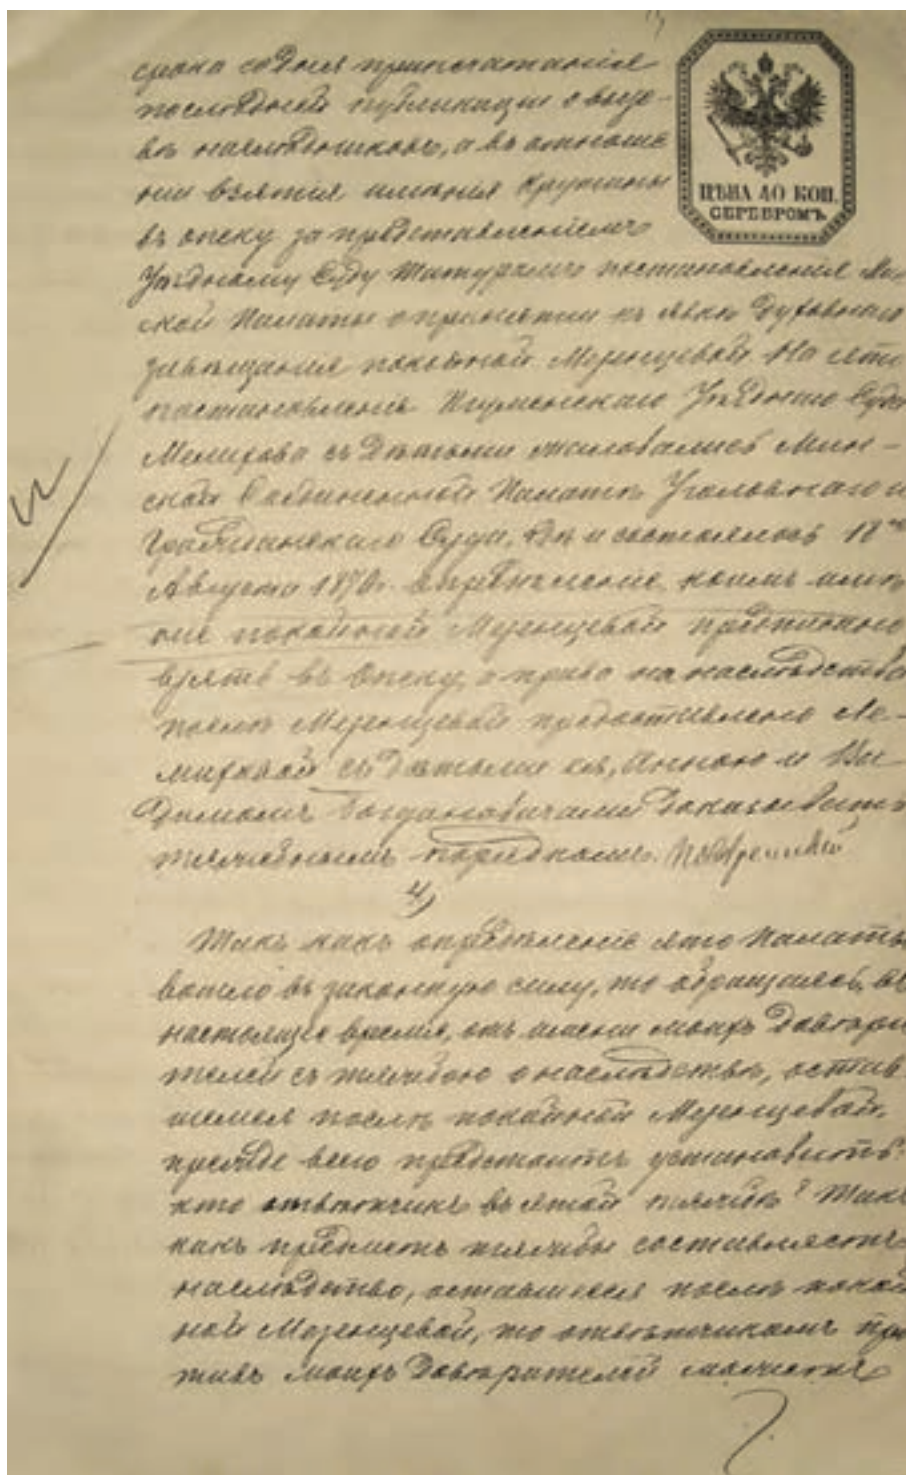 срока со дня припечатанія
послѣдней публикаціи о вызо-
вѣ наслѣдниковъ, а въ отноше
ніи взятія имѣнія Крупины
въ опеку за представленіемъ
ЦѢНА 40 КОП.
СЕРЕБРОМЪ
Уѣздному Суду постановленія Мин
ской Палаты о принятіи къ явкѣ духовнаго
завѣщанія покойной Мезенцевой. На это
постановленіе Игуменскаго Уѣзднаго Суда
съ дѣтьми жаловались Мин-
ской Соединенной Палатѣ Уголовнаго и
Гражданскаго Суда, гдѣ и состоялось 18го
Августа 1870 г. опредѣленіе, коимъ имѣ
ніе покойной Мезенцевой предписано
взять въ опеку, а право на наслѣдство
послѣ Мезенцевой предоставлено
съ дѣтьми ея, Анною и Ви-
Богдановичами доказывать
тяжебнымъ порядкомъ.
4)
Такъ какъ опредѣленіе это Палаты
вошло въ законную силу, то обращаясь, въ
настоящее время, отъ имени моихъ довѣри
телей съ тяжбою о наслѣдствѣ, остав
шемся послѣ покойной Мезенцевой,
прежде всего предстоитъ установить:
кто отвѣтчикъ въ этой тяжбѣ? Такъ
какъ предметъ тяжбы составляетъ
наслѣдство, оставшееся послѣ покой
ной Мезенцевой, то отвѣтчикомъ про
тивъ моихъ довѣрителей является